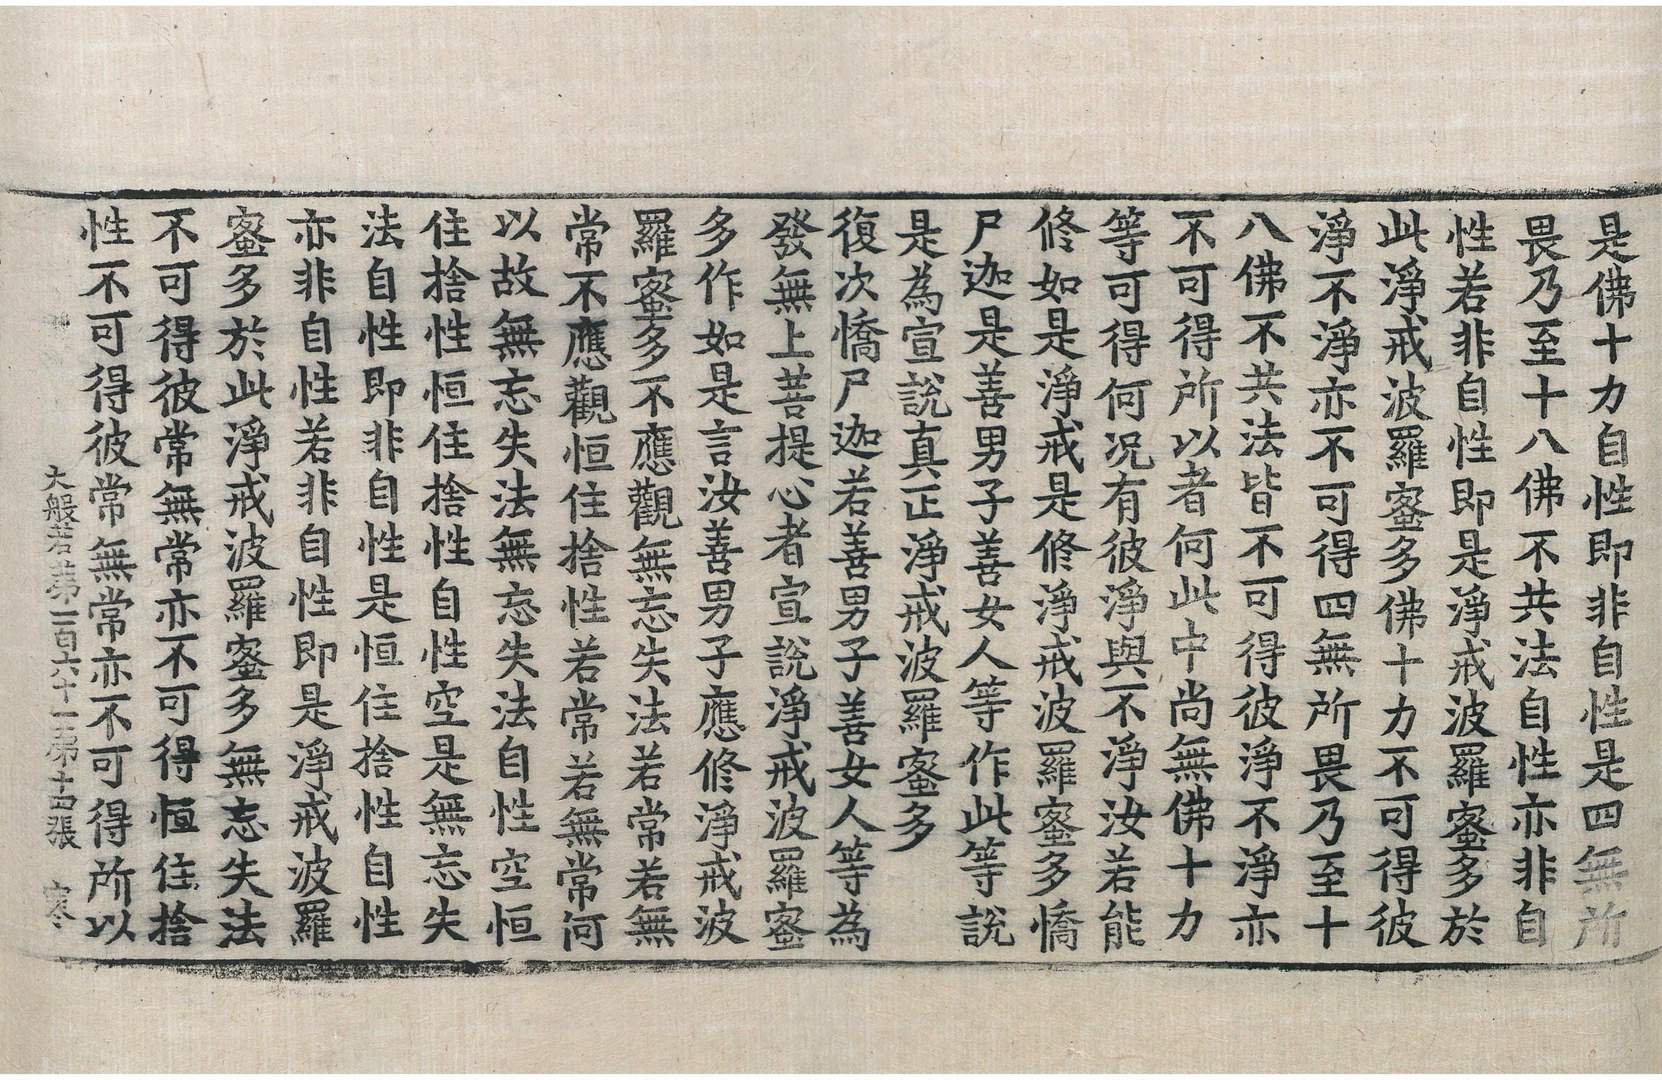 是佛十力自性即非自性是四無所
畏乃至十八佛不共法自性亦非自
性若非自性即是淨戒波羅蜜多於
此淨戒波羅蜜多佛十力不可得彼
淨不淨亦不可得四無所畏乃至十
八佛不共法皆不可得彼淨不淨亦
不可得所以者何此中尚無佛十力
等可得何況有彼淨與不淨汝若能
修如是淨戒是修淨戒波羅蜜多憍
尸迦是善男子善女人等作此等說
是為宣說真正淨戒波羅蜜多
復次憍尸迦若善男子善女人等為
發無上菩提心者宣說淨戒波羅蜜
多作如是言汝善男子應修淨戒波
羅蜜多不應觀無忘失法若常若無
常不應觀恒住捨性若常若無常何
以故無忘失法無忘失法自性空恒
住捨性恒住捨性自性空是無忘失
法自性即非自性是恒住捨性自性
亦非自性若非自性即是淨戒波羅
蜜多於此淨戒波羅蜜多無忘失法
不可得彼常無常亦不可得恒住捨
性不可得彼常無常亦不可得所以
大般若第一百六十一第十四張 寒